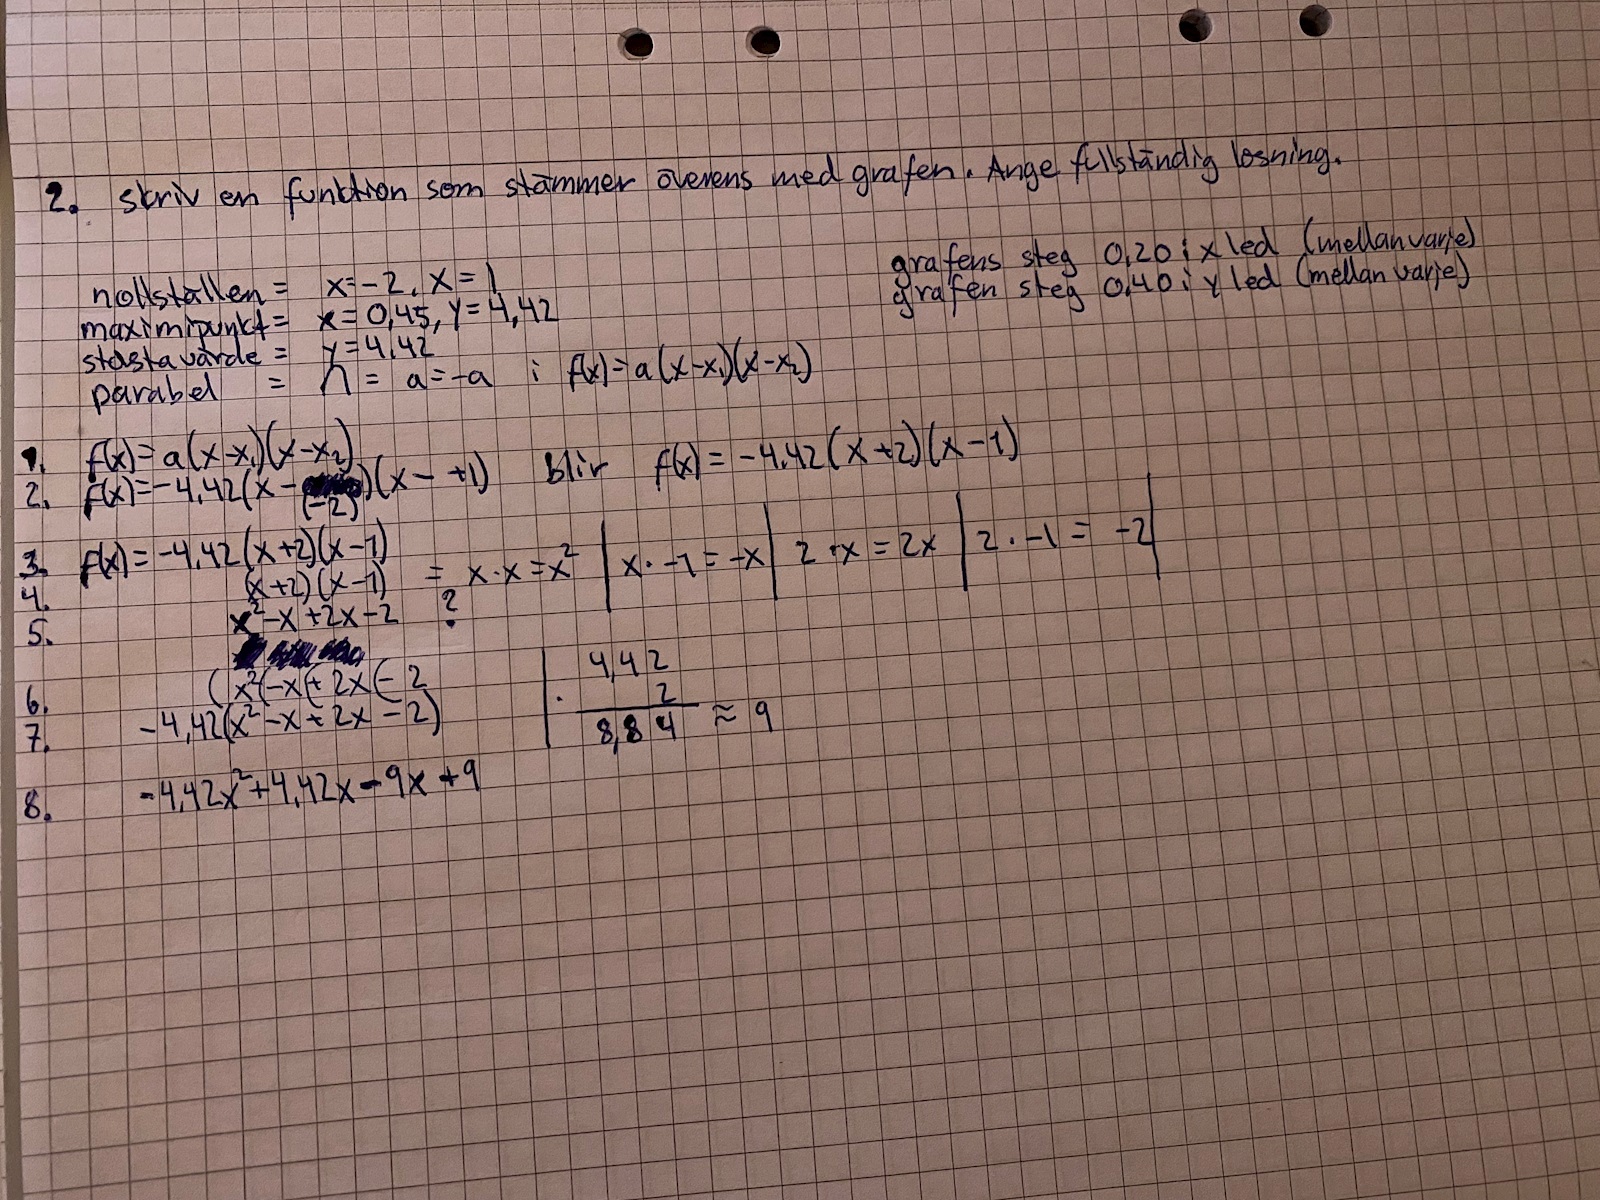 2. skriv en funktion som stämmer överens med grafen. Ange fullständig lösning.
grafens steg 0,20 i x led (mellan varje)
grafen steg 0,40 i y led (mellan varje)
nollställen = x=-2, x=1
maximipunkt = x=0,45, y=4,42
största värde = y=4,42
parabel = ∩ = a=-a i f(x)=a(x-x₁)(x-x₂)
1. f(x)=a(x-x₁)(x-x₂)
2. f(x)=-4,42(x-(-2))(x-+1) blir f(x)=-4,42(x+2)(x-1)
3. f(x)=-4,42(x+2)(x-1)
4. (x+2)(x-1) = x·x=x² | x·-1=-x | 2·x=2x | 2·-1=-2 |
5. x²-x+2x-2 ?
6. (x²(-x(+2x(-2
7. -4,42(x²-x+2x-2)
| 4,42
· 2
8,84 ≈ 9
8. -4,42x²+4,42x-9x+9